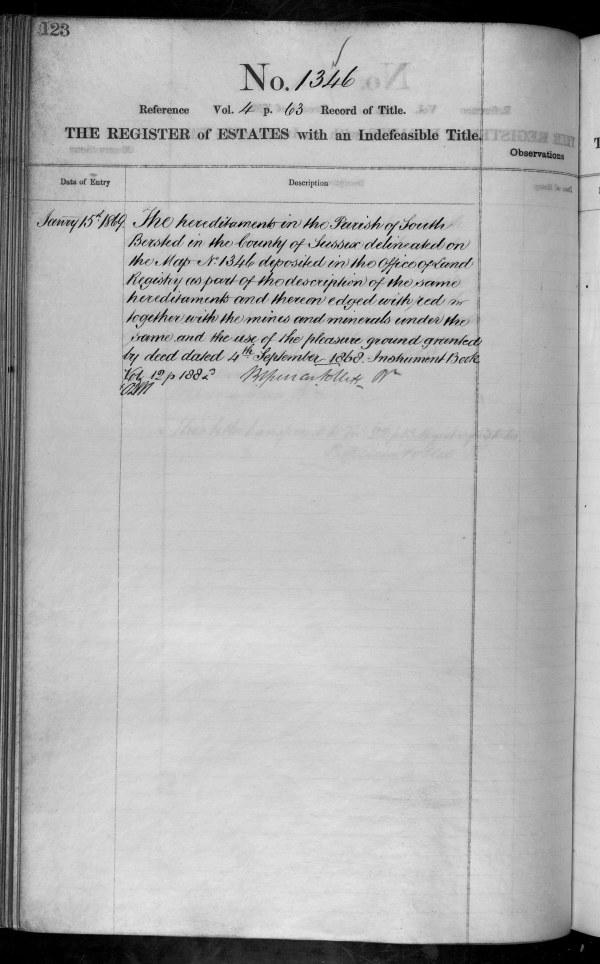 123
No. 1346
Reference Vol. 4 p. 63 Record of Title.
THE REGISTER of ESTATES with an Indefeasible Title.
Observations
Date of Entry
Description
Janry 15th 1869. The hereditaments in the Parish of South
Bersted in the County of Sussex delineated on
the Map No. 1346 deposited in the Office of Land
Registry as part of the description of the same
hereditaments and thereon edged with red
together with the mines and minerals under the
same and the use of the pleasure ground granted
by deed dated 4th September 1868. Instrument Book
Vol. 12 p 188